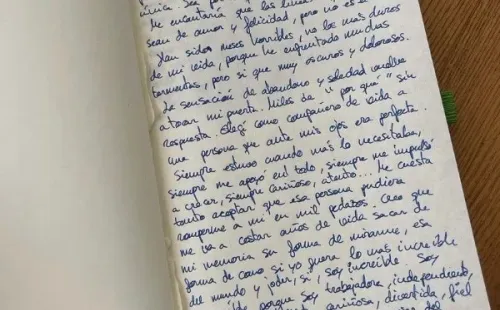 única. Ser
Me encantaría que las líneas
sean de amor y felicidad, pero no es
Han sidos meses horribles, no los más duros
de mi vida, porque he enfrentado muchas
tormentas, pero si que muy oscuros y dolorosos.
La sensación de abandono y soledad
a tocar mi puerta. Miles de "por qué" sin
respuesta. Elegí como compañero de vida a
una persona que ante mis ojos era perfecta.
Siempre estuvo cuando más lo necesitaba,
siempre me apoyó en todo, siempre me impulsó
a crecer, siempre cariñoso, atento... Me cuesta
tanto aceptar que esa persona pudiera
romperme a mí en mil pedazos. Creo que
me va a costar años de vida sacar de
mi memoria su forma de mirarme, esa
forma de como si yo fuera lo más increíble
del mundo y joder, si, soy increíble. Soy
porque soy trabajadora, independiente,
cariñosa, divertida, fiel